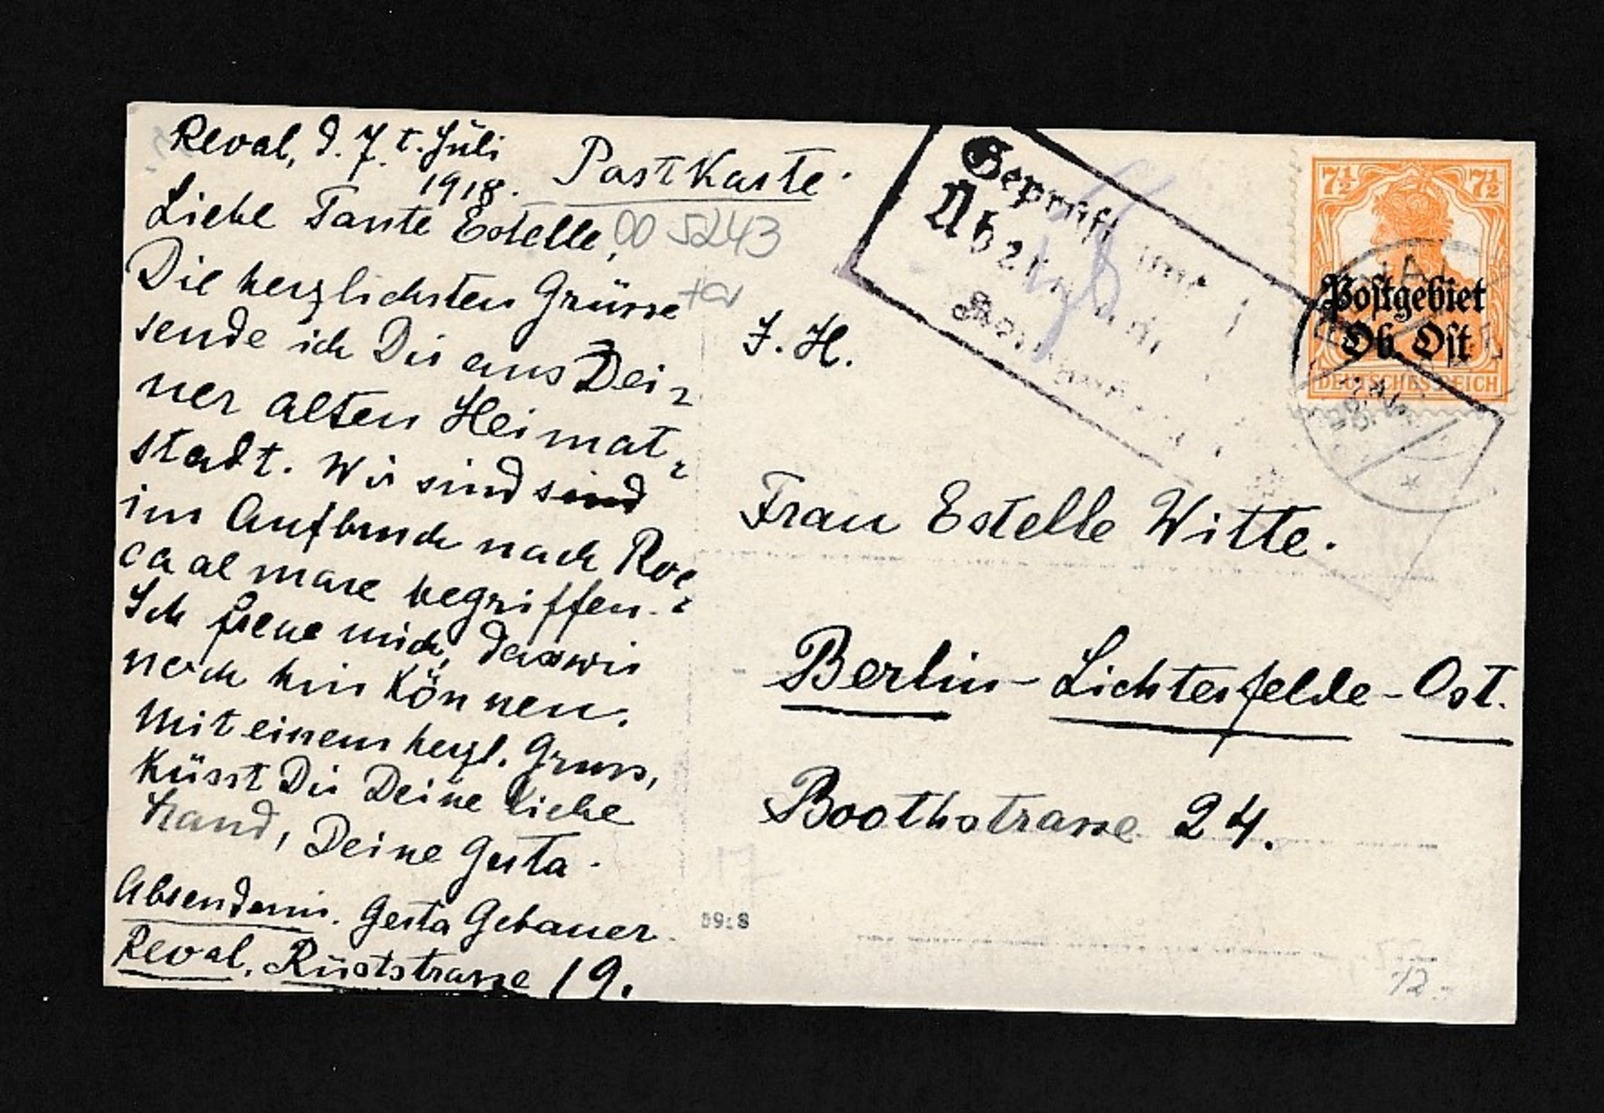 Reval, d. 7. t. Juli
1918.
Postkarte.
Liebe Tante Estelle,
00 5243
Die herzlichsten Grüsse
sende ich Dir aus Dei-
ner alten Heimat-
stadt. Wir sind sind
im Aufbruch nach Roc-
ca al mare begriffen.
Ich freue mich, dass wir
noch hin können.
Mit einem herzl. Gruss,
küsst Dir Deine liebe
Hand, Deine Gerta.
Absenderin. Gerta Gebauer.
Reval, Rüststrasse 19.
Geprüft und
Postgebiet
Ob. Ost
7½ 7½
DEUTSCHES REICH
REVAL
I. H.
Frau Estelle Witte.
Berlin-Lichterfelde-Ost.
Boothstrasse 24.
12.